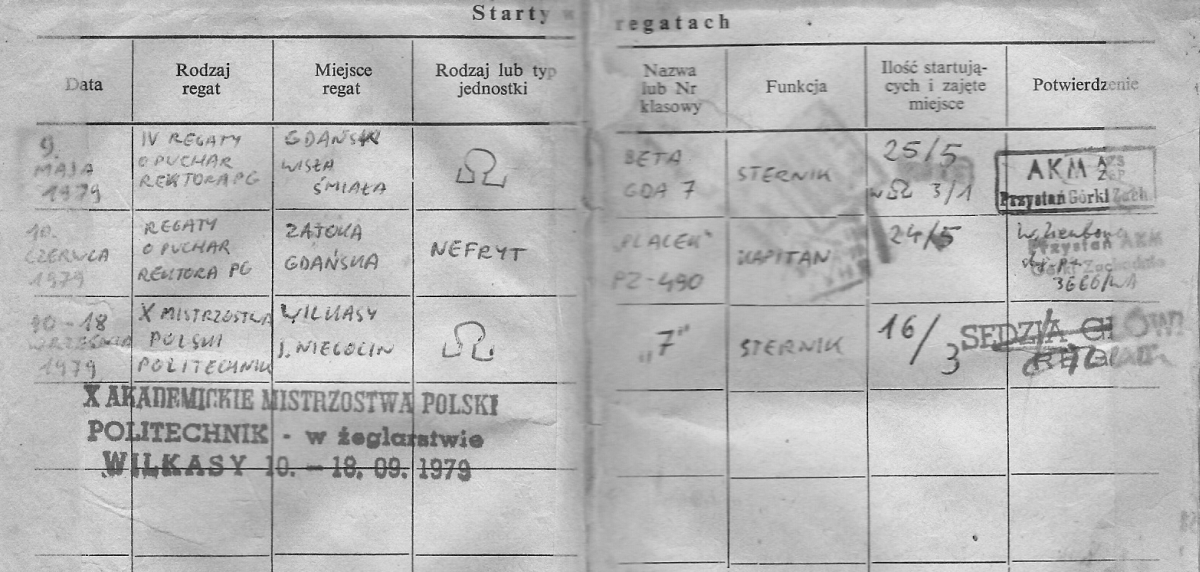 Starty w regatach
Data
Rodzaj
regat
Miejsce
regat
Rodzaj lub typ
jednostki
Nazwa
lub Nr
klasowy
Funkcja
Ilość startują-
cych i zajęte
miejsce
Potwierdzenie
9.
MAJA
1979
IV REGATY
O PUCHAR
REKTORA PG
GDAŃSK
WISŁA
ŚMIAŁA
Ω
BETA
GDA 7
STERNIK
25/5
w Ω 3/1
AKM AZS
Przystań Górki Zach
10.
CZERWCA
1979
REGATY
O PUCHAR
REKTORA PG
ZATOKA
GDAŃSKA
NEFRYT
"PLACEK"
PZ-490
KAPITAN
24/5
Przystań AKM
Górki Zachodnie
10-18
WRZEŚNIA
1979
X MISTRZOSTWA
POLSKI
POLITECHNIK
WILKASY
J. NIEGOCIN
Ω
„7"
STERNIK
16/3
SĘDZIA GŁÓWN
X AKADEMICKIE MISTRZOSTWA POLSKI
POLITECHNIK - w żeglarstwie
WILKASY 10. - 18. 09. 1979